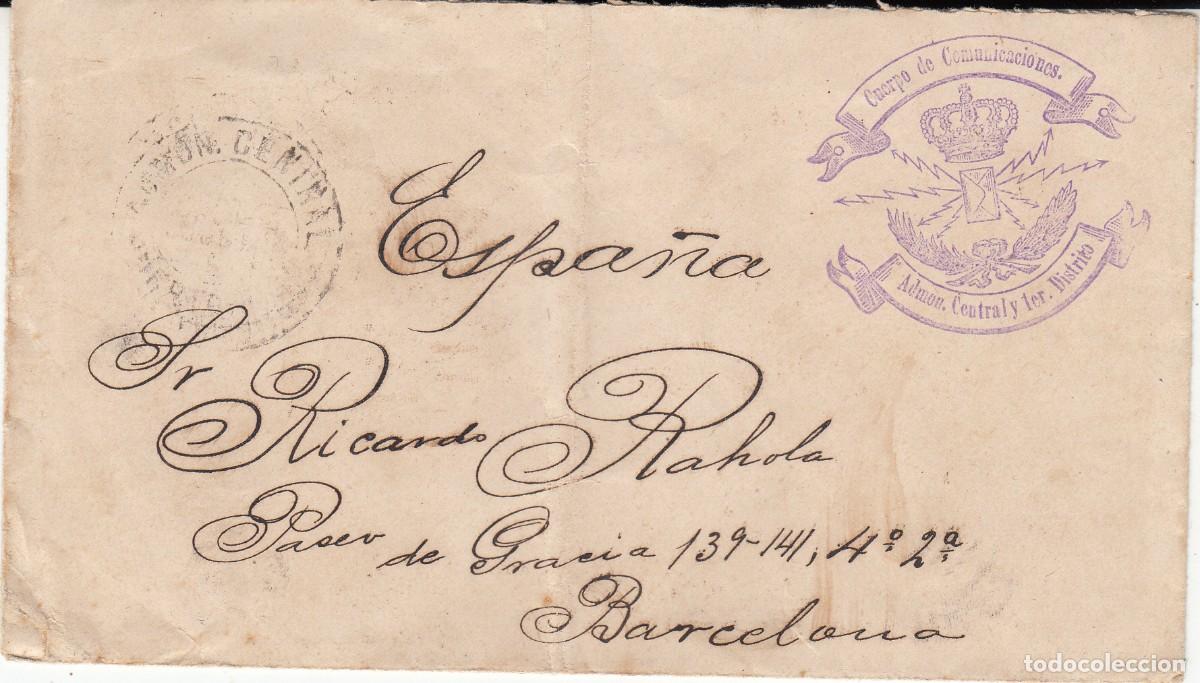 Cuerpo de Comunicaciones.
Admon. Central y 1er. Distrito
ADMON. CENTRAL
España
Sr Ricardo Rahola
Paseo de Gracia 139-141, 4º 2ª
Barcelona
todocoleccion